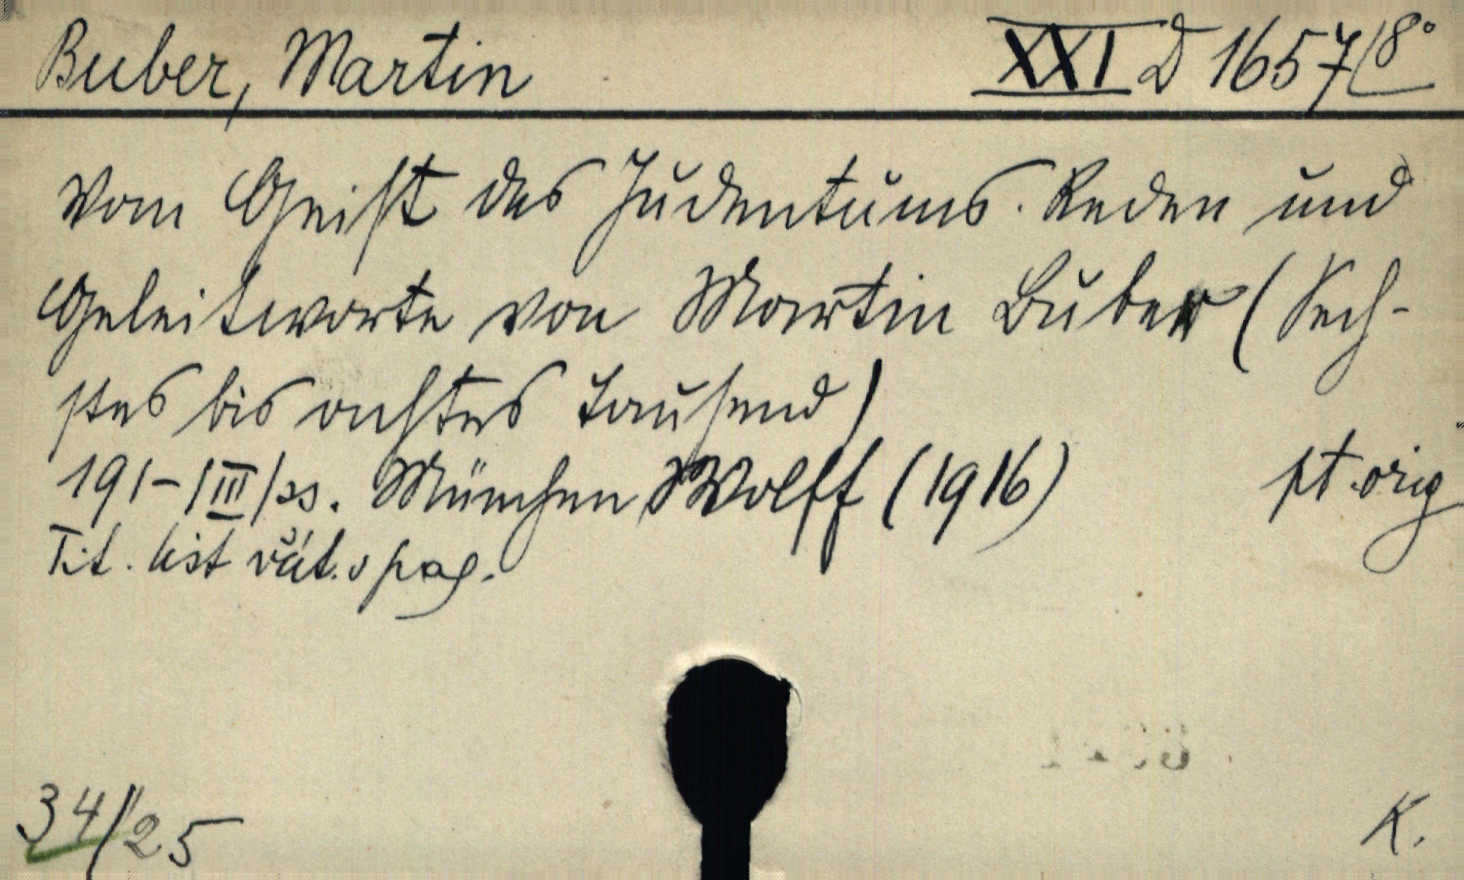 Buber, Martin XXI D 1657/8°
Vom Geist des Judentums. Reden und
Geleitworte von Martin Buber (Sech-
stes bis achtes Tausend)
191-/III/ss. München Wolff (1916) pt. orig
Tit. list váz. v pag.
34/25 K.